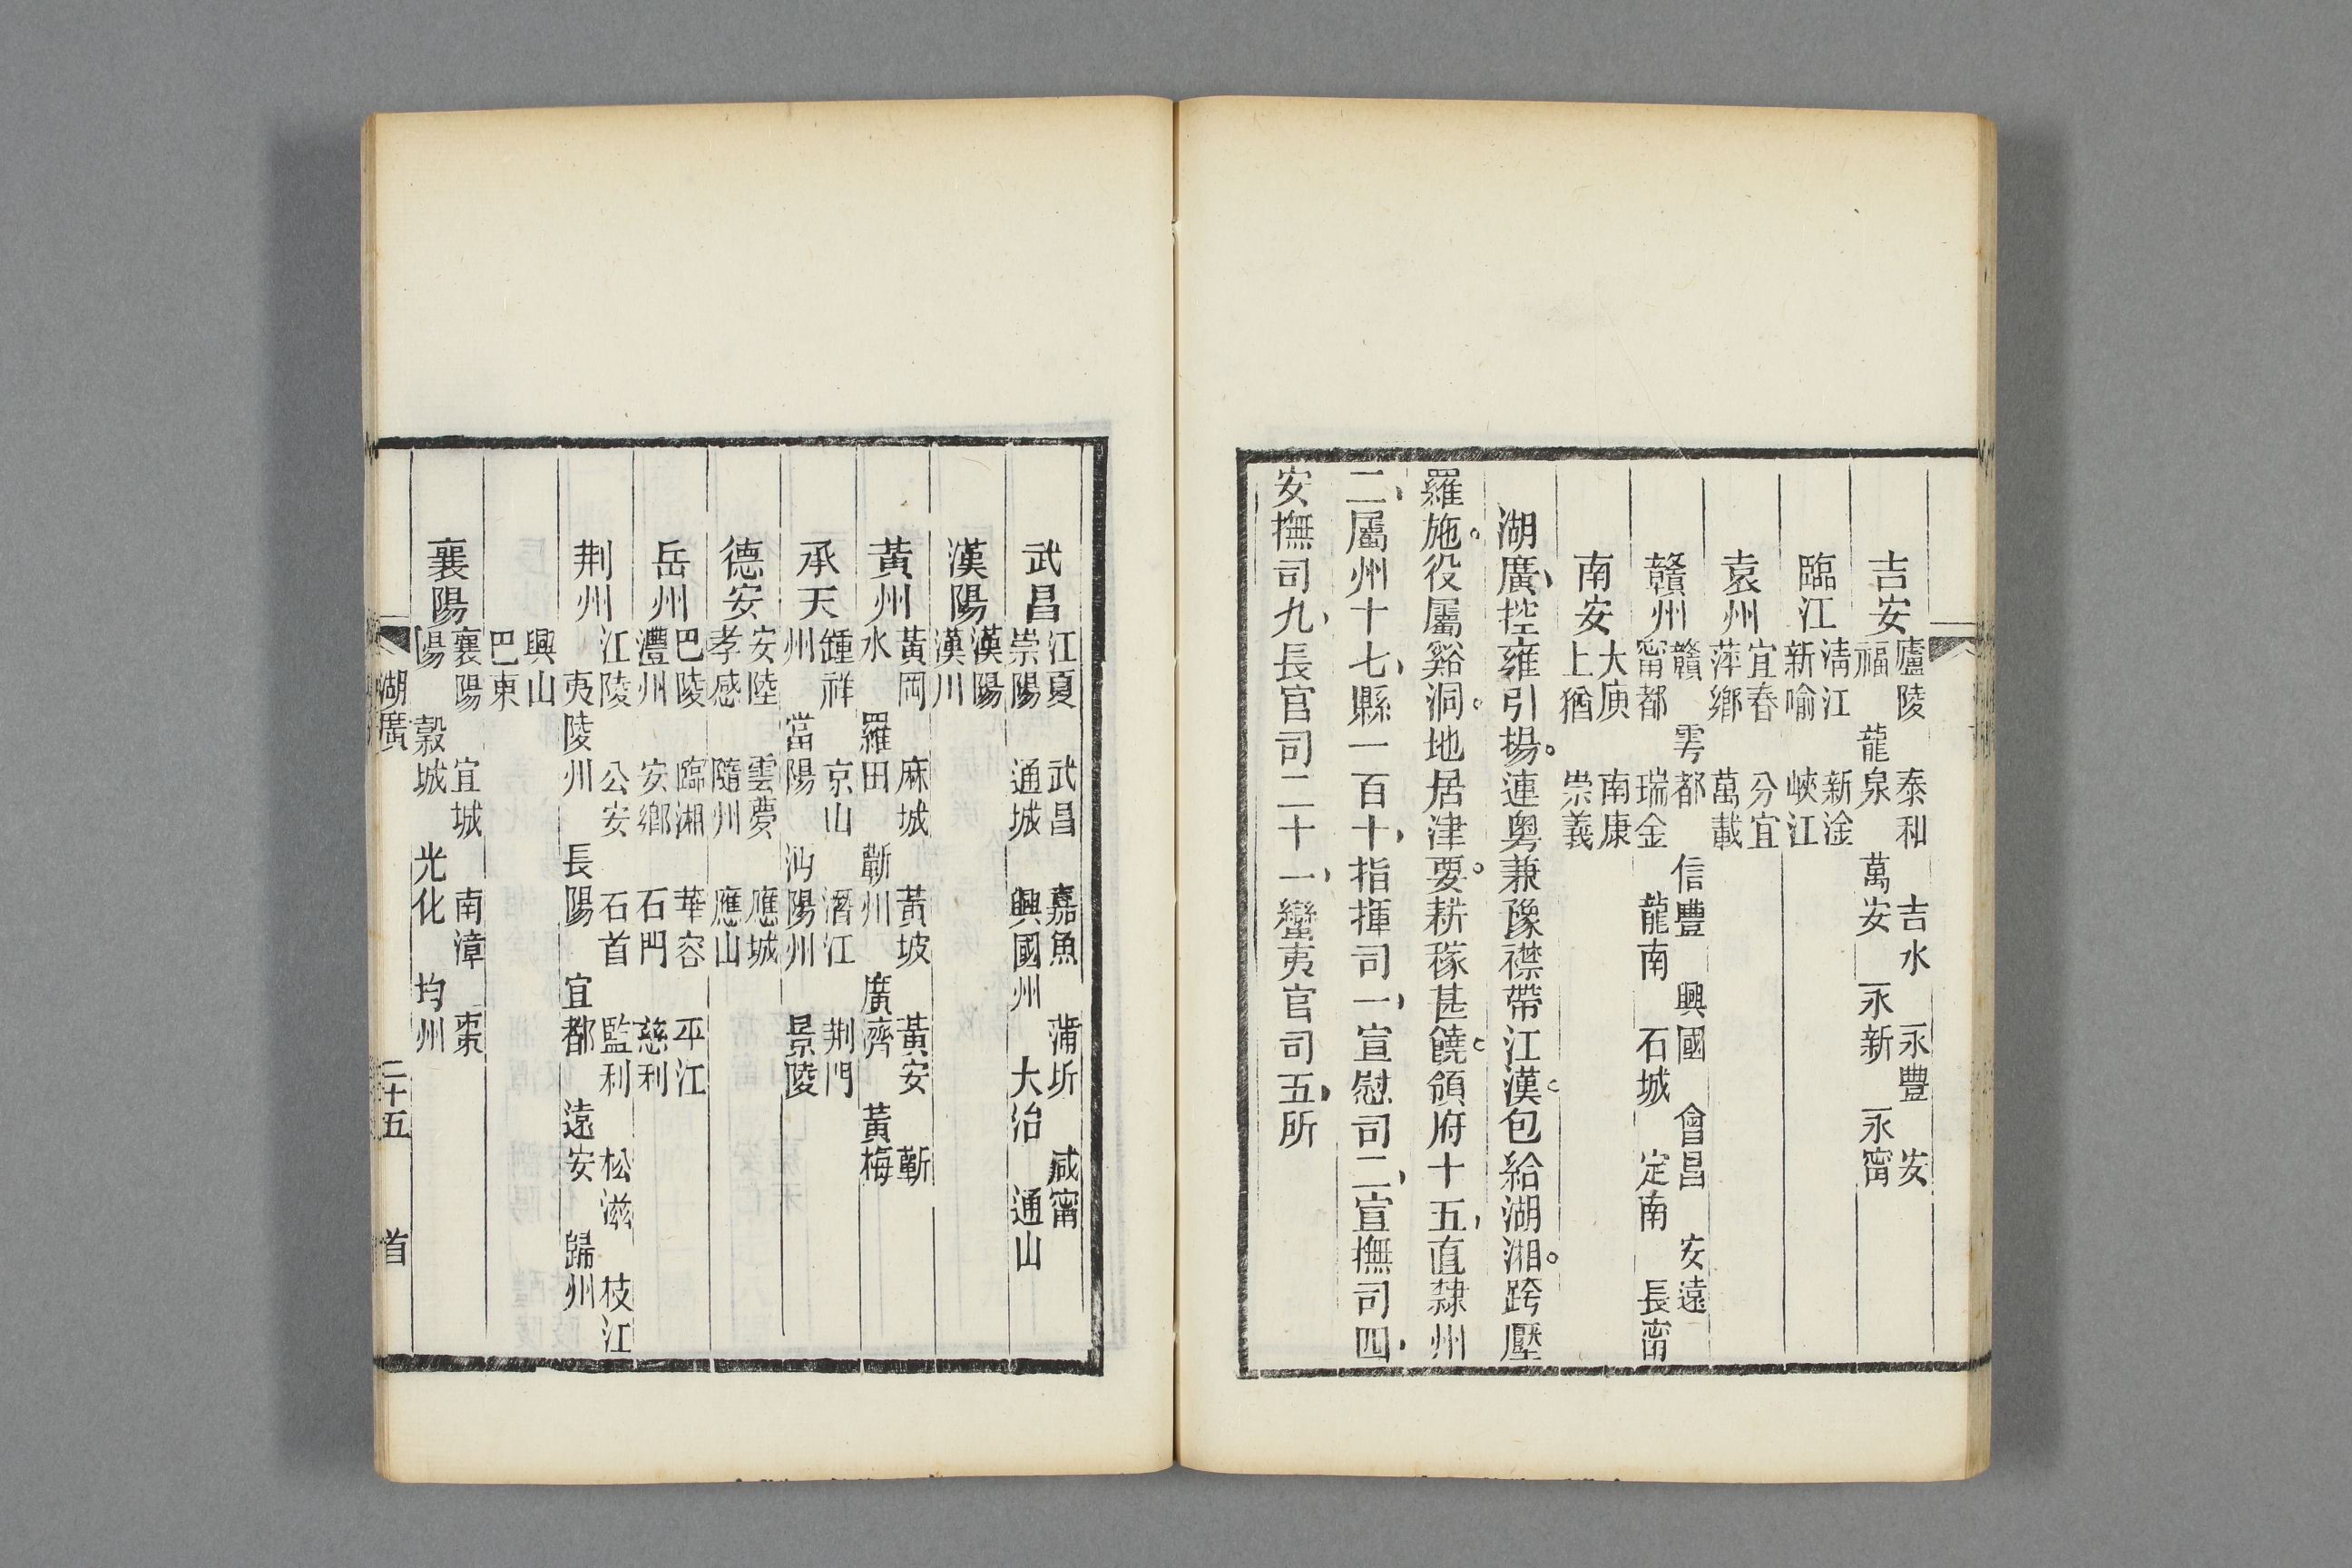 吉安 廬陵 泰和 吉水 永豐 安
福 龍泉 萬安 永新 永甯
臨江 淸江 新淦
新喻 峽江
袁州 宜春 分宜
萍鄉 萬載
贛州 贛 雩都 信豐 興國 會昌 安遠
甯都 瑞金 龍南 石城 定南 長甯
南安 大庾 南康
上猶 崇義
湖廣、控雍引揚。連粵兼豫襟帶江漢。包給湖湘。跨壓
羅施。役屬谿洞。地居津要。耕稼甚饒。領府十五、直隸州
二、屬州十七、縣一百十、指揮司一、宣慰司二、宣撫司四、
安撫司九、長官司二十一、蠻夷官司五、所
武昌 江夏 武昌 嘉魚 蒲圻 咸甯
崇陽 通城 興國州 大冶 通山
漢陽 漢陽
漢川
黃州 黃岡 麻城 黃坡 黃安 蘄
水 羅田 蘄州 廣濟 黃梅
承天 鍾祥 京山 潛江 荆門
州 當陽 沔陽州 景陵
德安 安陸 雲夢 應城
孝感 隨州 應山
岳州 巴陵 臨湘 華容 平江
灃州 安鄉 石門 慈利
荆州 江陵 公安 石首 監利 松滋 枝江
夷陵州 長陽 宜都 遠安 歸州
興山
巴東
襄陽 襄陽 宜城 南漳 棗
陽 穀城 光化 均州
湖廣 二十五 首